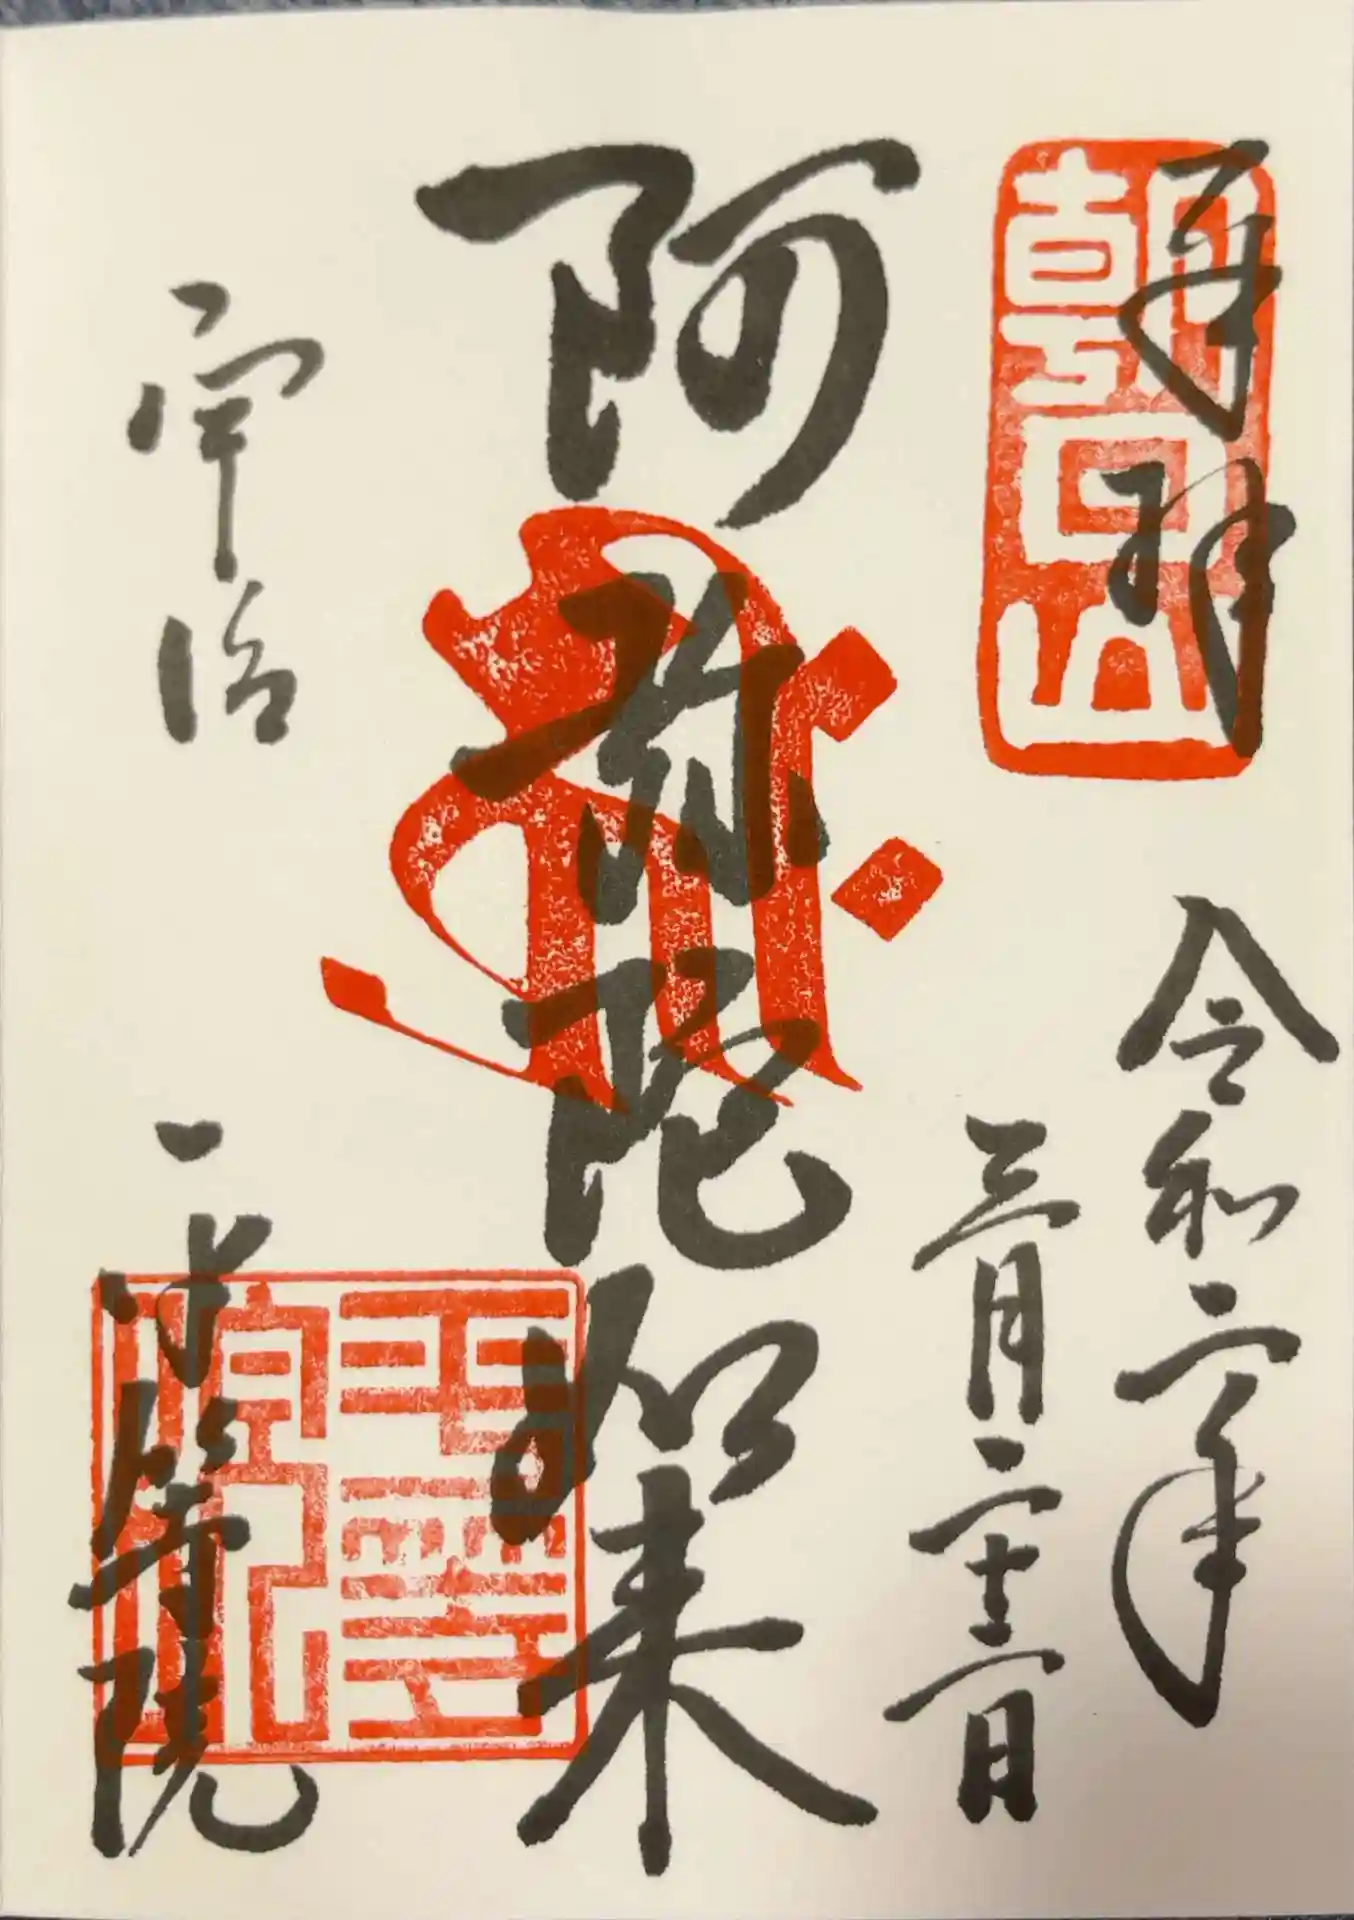 奉拝
朝日山
令和二年
三月二十二日
阿弥陀如来
宇治
平等院
平等院印